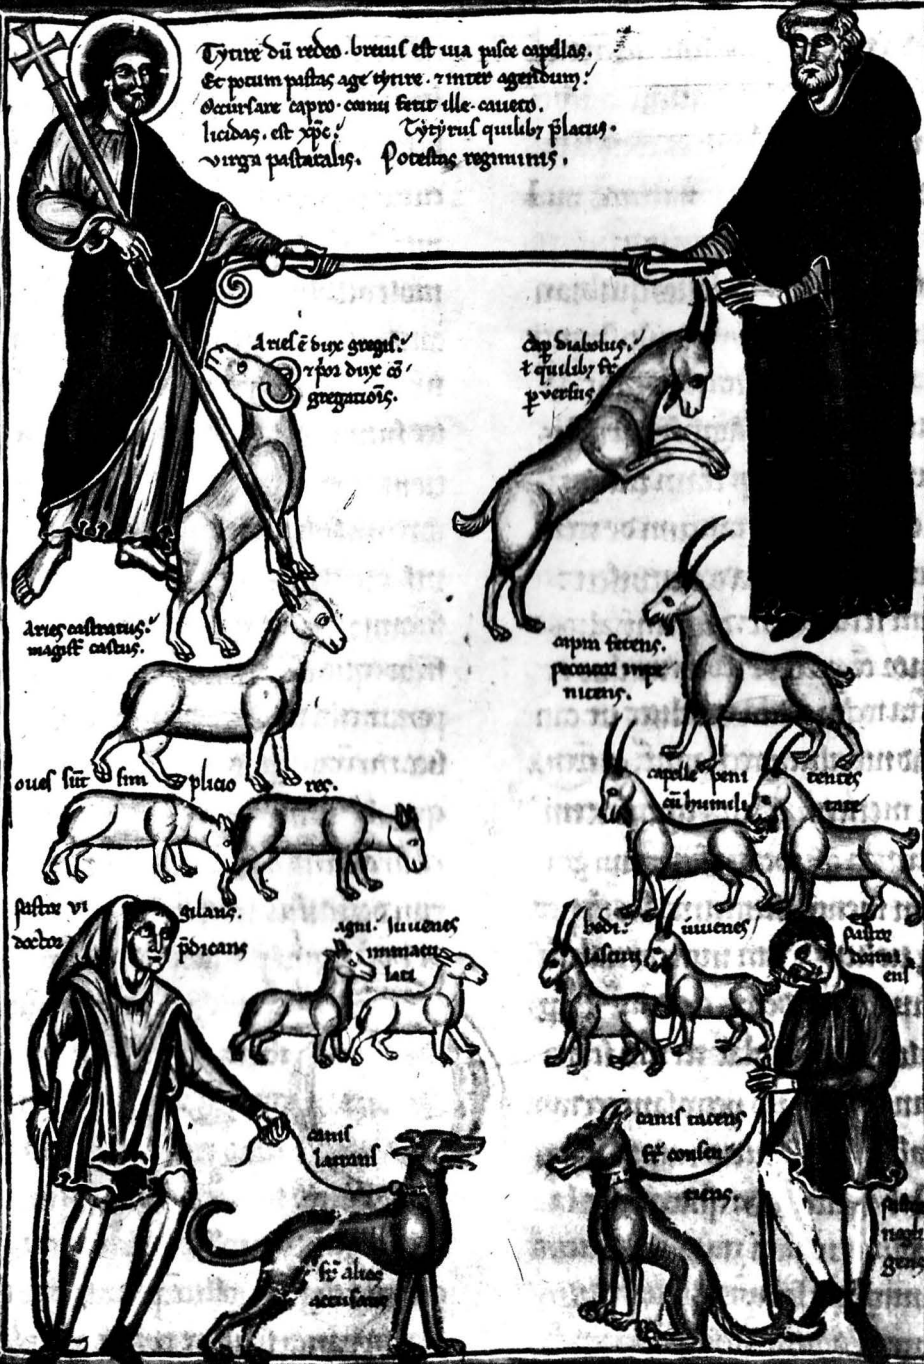 Tytire dū redeo · brevis est via pasce capellas.
Et potum pastas age tytire · ⁊ inter agendum:
Occursare capro · cornu ferit ille · caveto.
licidas. est xp̄c: Tytyrus quilibꝫ p̄latus.
virga pastoralis. Potestas regiminis.
Aries ē dux gregis:
⁊ p̄or dux cō
gregatiōis.
cap̄ diabolus.
ł quilibꝫ fr̄
ꝑversus
Aries castratus:
magist̄ castus.
caper fetens.
peccator inpe
nitens.
oves sūt sim plicio res.
capelle peni tentes
cū humili tate
pastor vi gilans.
doctor p̄dicans
agni. iuvenes
immacu
lati
hedi: iuvenes
lascivi
pastor
dormi
ens
canis
latrans
canis tacens
fr̄ consen
tiens.
fr̄ alios
accusans